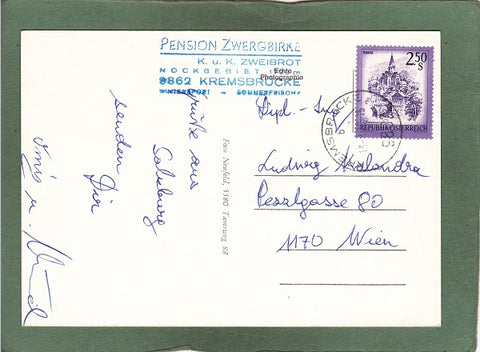 PENSION ZWERGBIRKE
K. u. K. ZWEIBROT
NOCKGEBIET
9862 KREMSBRÜCKE
WINTERSPORT - SOMMERFRISCHE
Echte
Photographie
2,50
S
REPUBLIK ÖSTERREICH
KREMSBRÜCKE
Grüße aus
Salzburg
senden
Dir
Foto Neufeld, 5580 Tamsweg 88
Dipl.-Ing.
Ludwig Kalandra
Pezzlgasse 80
1170 Wien